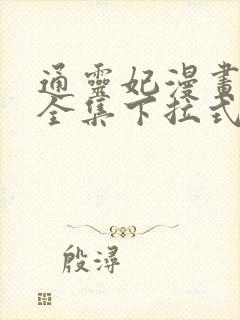 通靈妃漫畫
全集下拉式
殷潯